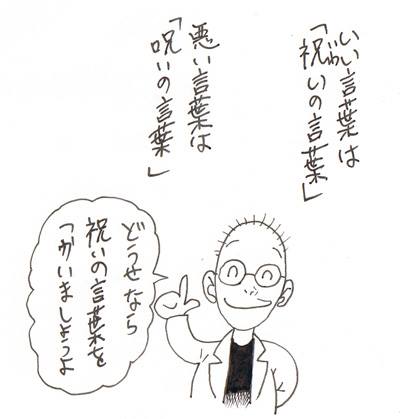 いい言葉は
「祝いの言葉」
いわ
悪い言葉は
「呪いの言葉」
どうせなら
祝いの言葉を
つかいましょうよ